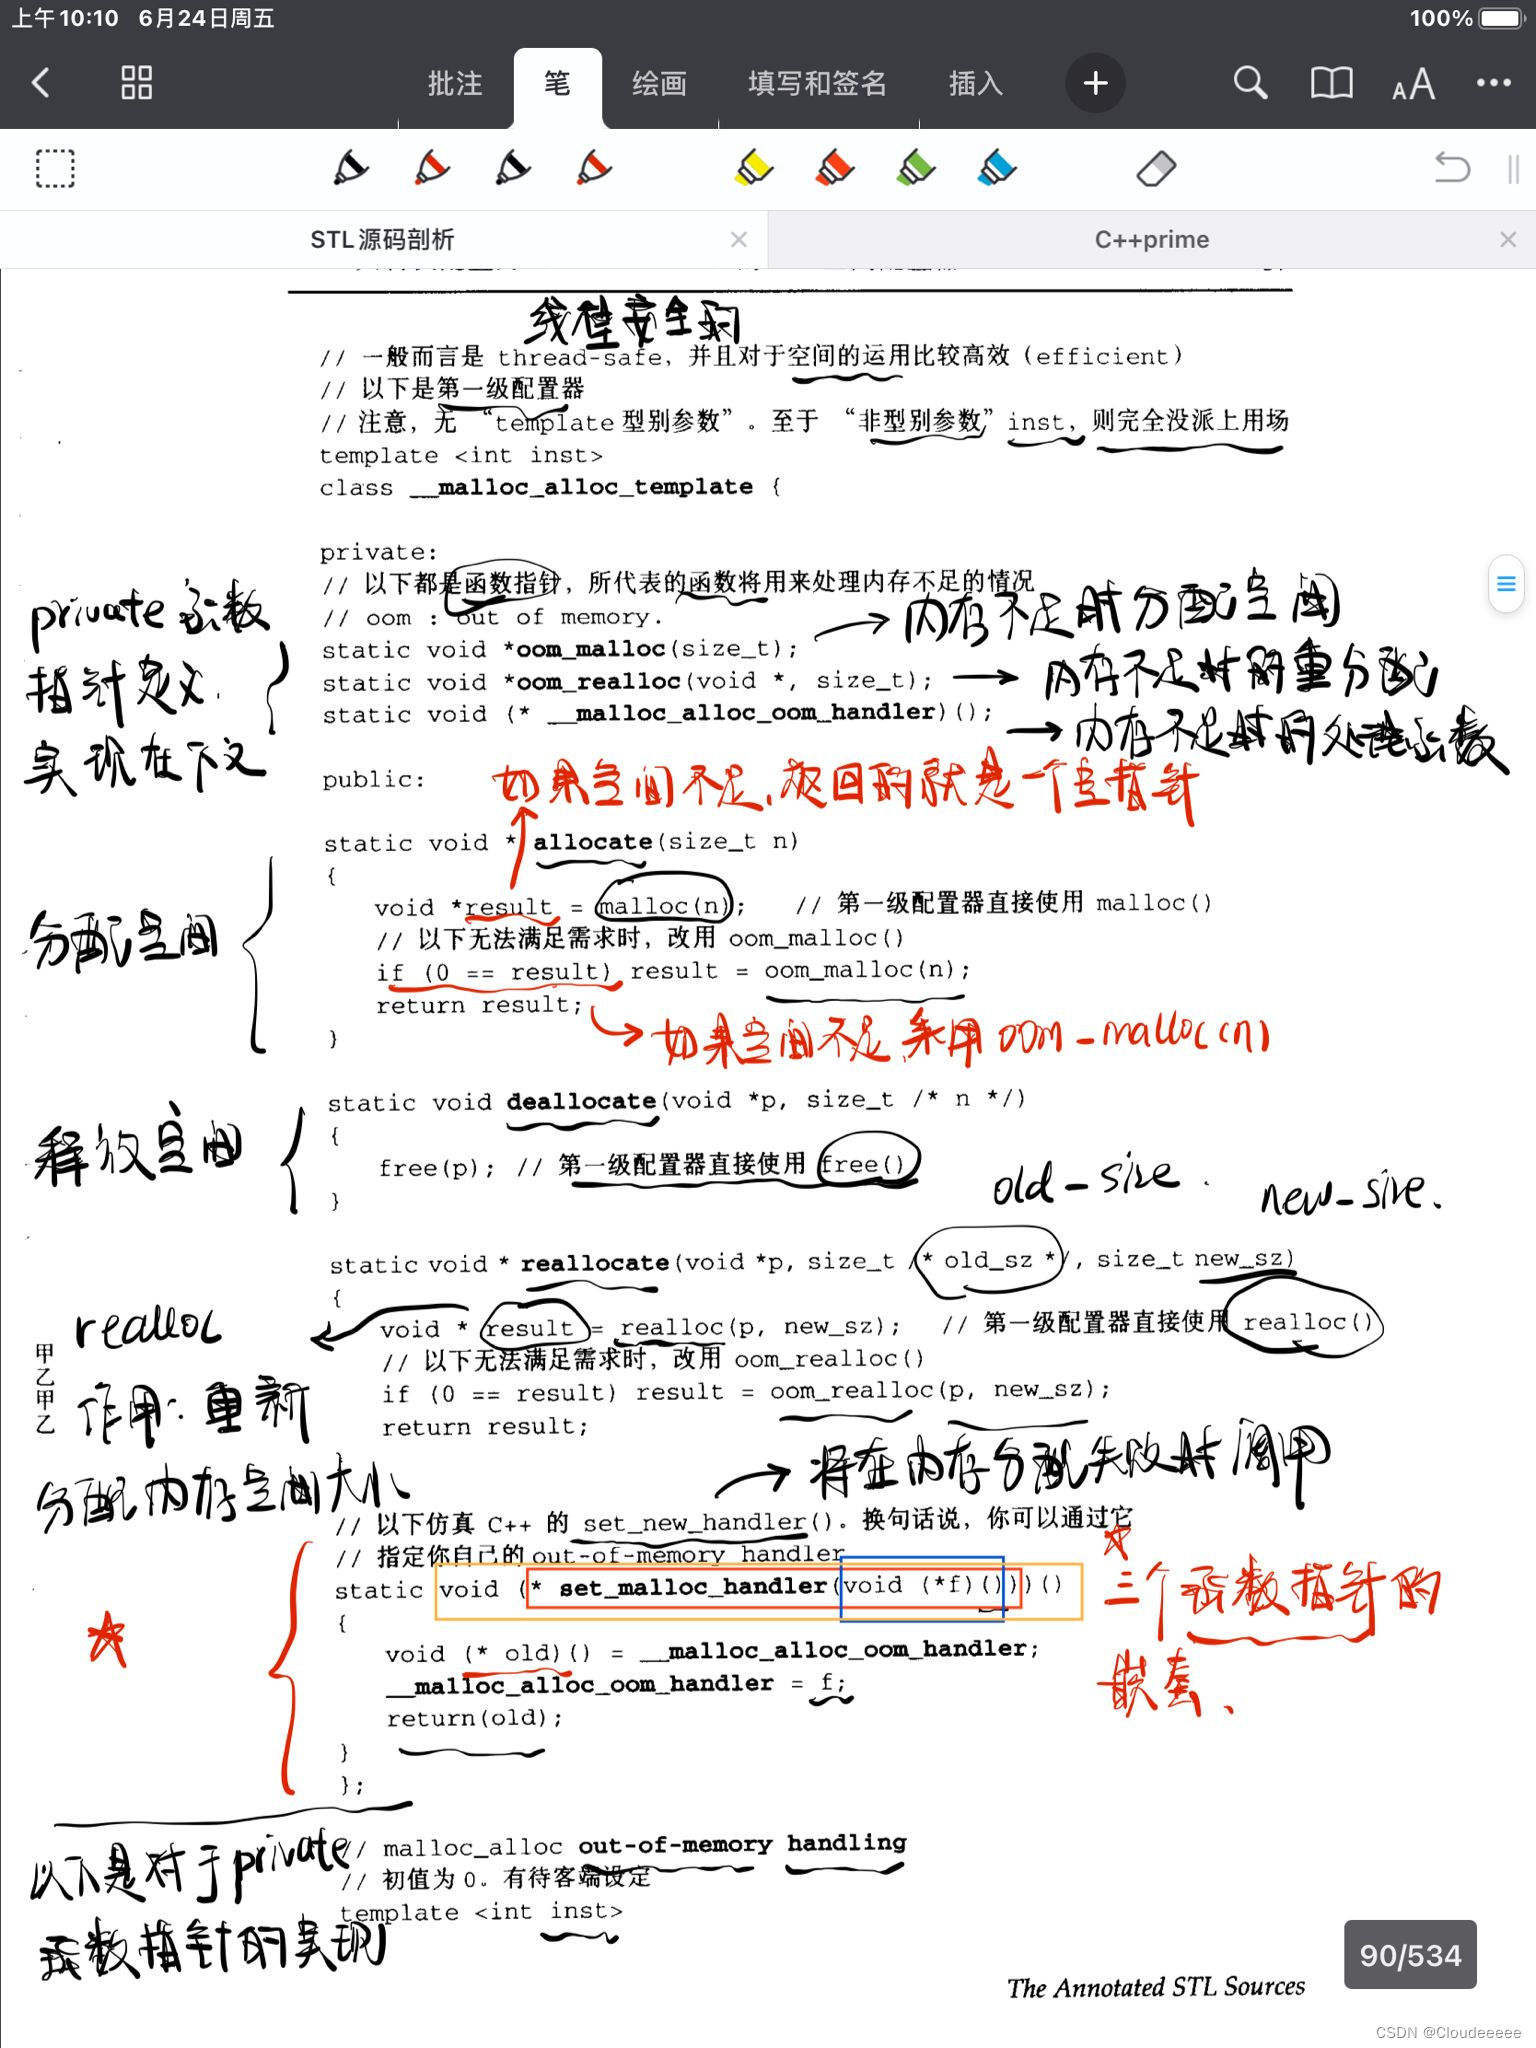 上午10:10 6月24日周五
100%
批注 笔 绘画 填写和签名 插入
STL源码剖析
C++prime
线程安全的
// 一般而言是 thread-safe，并且对于空间的运用比较高效（efficient）
// 以下是第一级配置器
// 注意，无 “template 型别参数”。至于 “非型别参数” inst，则完全没派上用场
template <int inst>
class __malloc_alloc_template {
private:
// 以下都是函数指针，所代表的函数将用来处理内存不足的情况
// oom : out of memory.
static void *oom_malloc(size_t);
static void *oom_realloc(void *, size_t);
static void (* __malloc_alloc_oom_handler)();
private 函数
指针定义.
实现在下文
内存不足时分配空间
内存不足时的重分配
内存不足时的处理函数
public:
如果空间不足，返回的就是一个空指针
static void * allocate(size_t n)
{
void *result = malloc(n); // 第一级配置器直接使用 malloc()
// 以下无法满足需求时，改用 oom_malloc()
if (0 == result) result = oom_malloc(n);
return result;
}
分配空间
如果空间不足 采用 oom_malloc(n)
static void deallocate(void *p, size_t /* n */)
{
free(p); // 第一级配置器直接使用 free()
}
释放空间
old-size.
new-size.
static void * reallocate(void *p, size_t /* old_sz */, size_t new_sz)
{
void * result = realloc(p, new_sz); // 第一级配置器直接使用 realloc()
// 以下无法满足需求时，改用 oom_realloc()
if (0 == result) result = oom_realloc(p, new_sz);
return result;
}
realloc
作用：重新
分配内存空间大小
甲
乙
甲
乙
将在内存分配失败时调用
// 以下仿真 C++ 的 set_new_handler()。换句话说，你可以通过它
// 指定你自己的 out-of-memory handler
static void (* set_malloc_handler(void (*f)()))()
{
void (* old)() = __malloc_alloc_oom_handler;
__malloc_alloc_oom_handler = f;
return(old);
}
};
三个函数指针的
嵌套、
// malloc_alloc out-of-memory handling
// 初值为 0。有待客端设定
template <int inst>
以下是对于private
函数指针的实现
90/534
The Annotated STL Sources
CSDN @Cloudeeeee